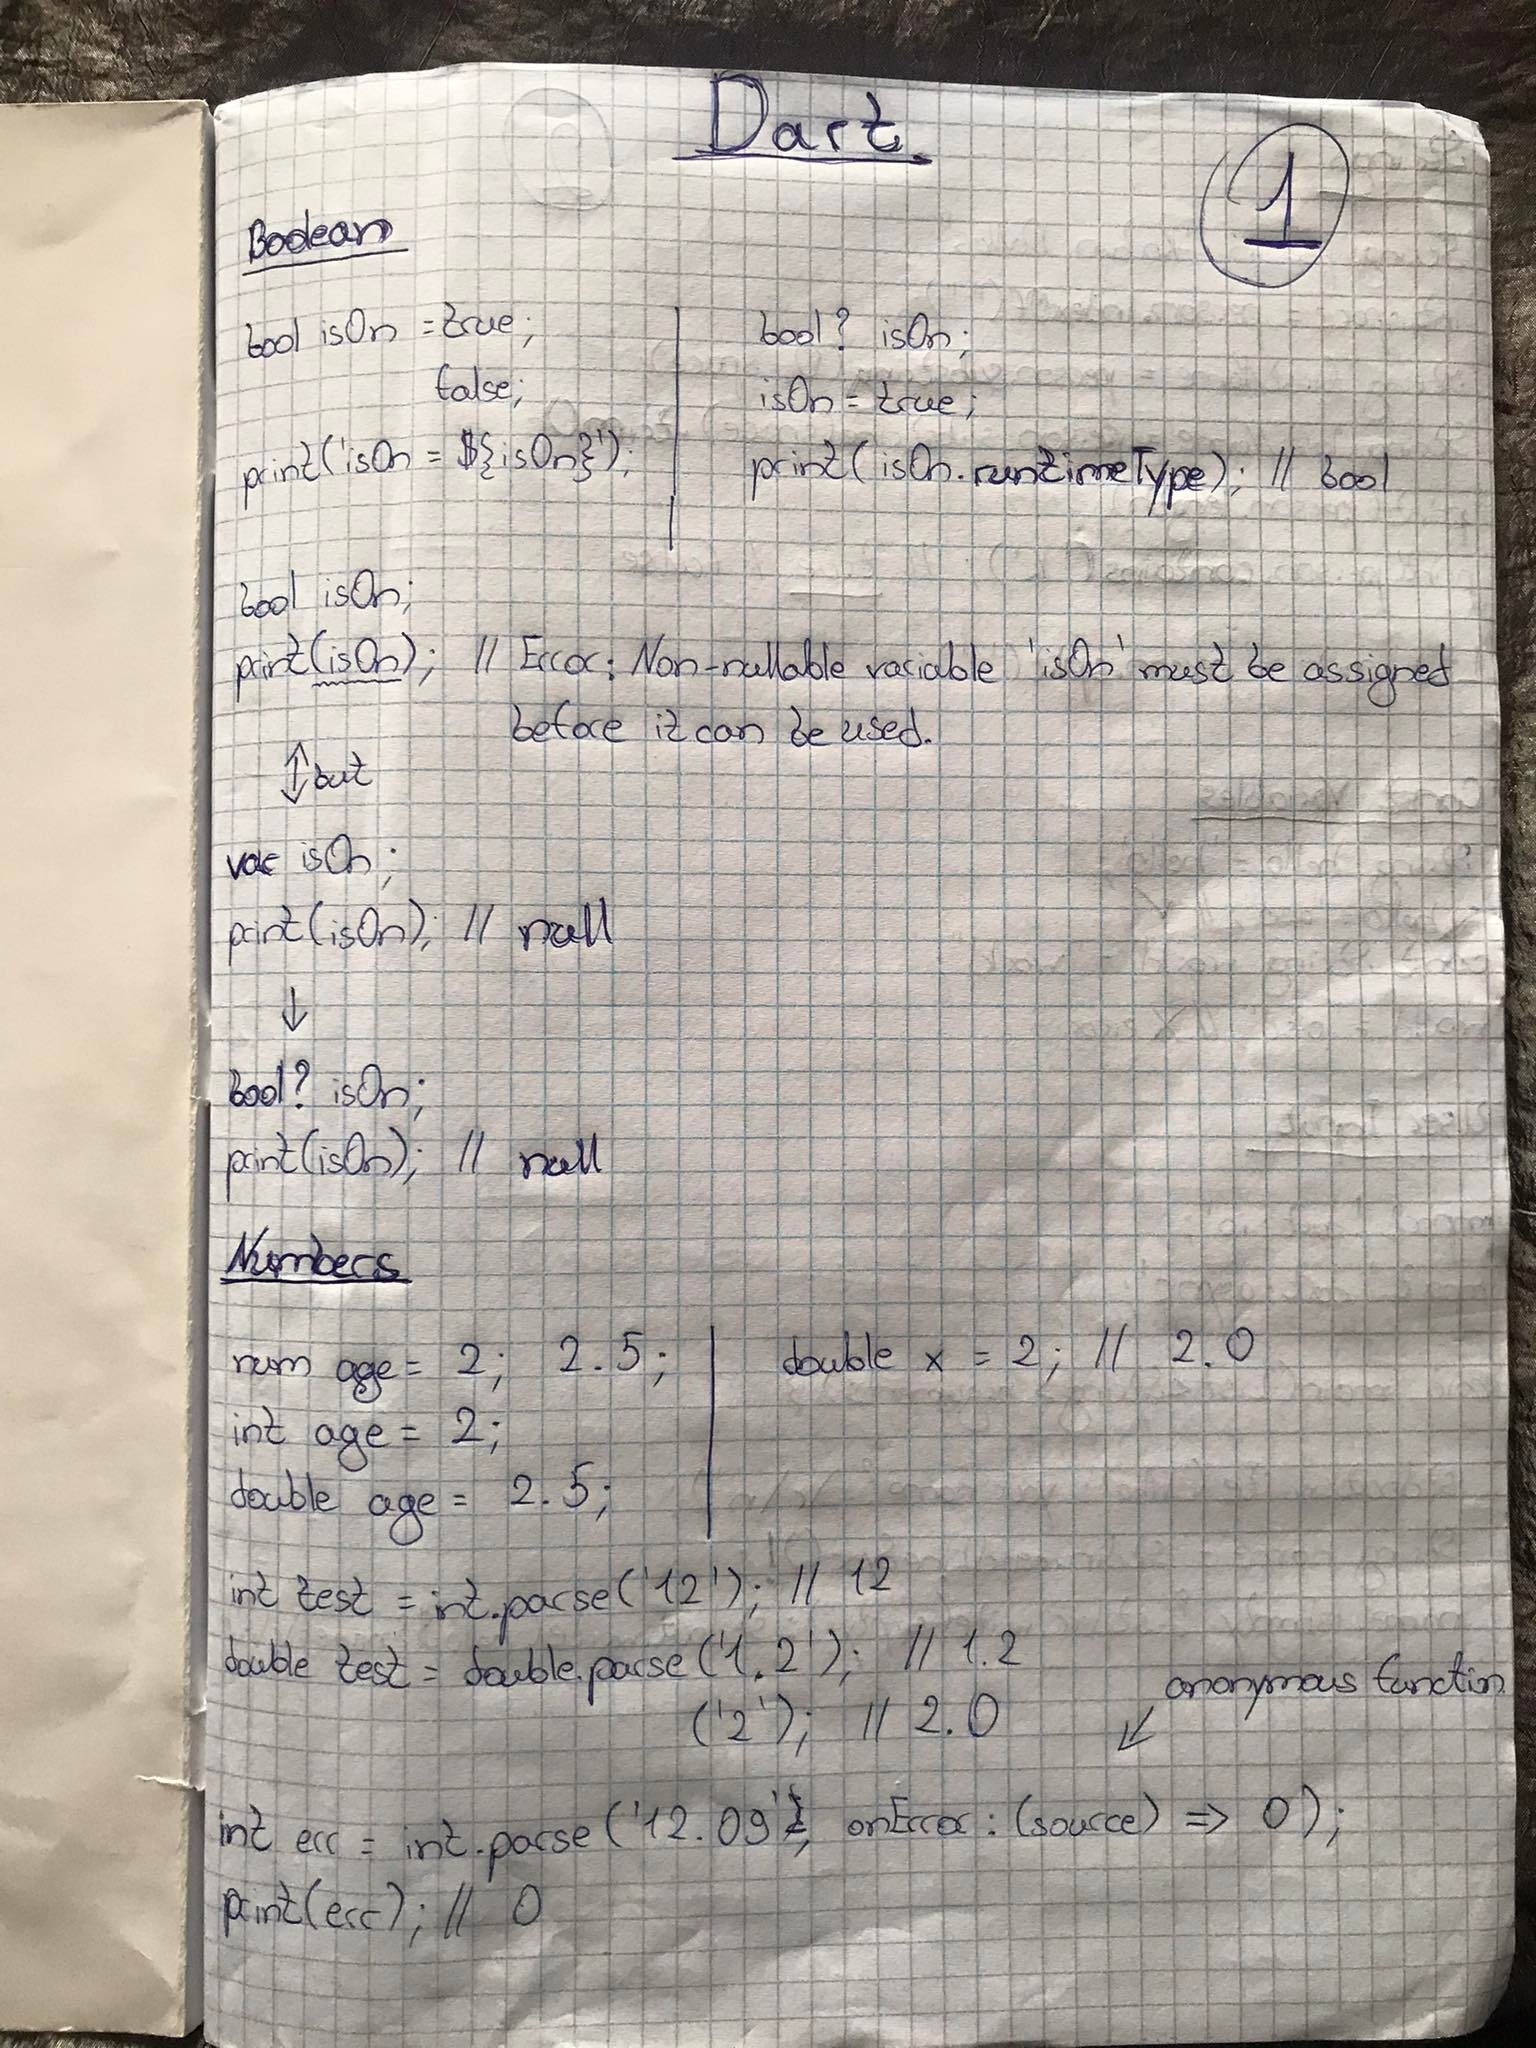 Dart.
1
Boolean
bool isOn = true;
false;
print('isOn = ${isOn}');
bool? isOn;
isOn = true;
print(isOn.runtimeType); // bool
bool isOn;
print(isOn); // Error: Non-nullable variable 'isOn' must be assigned
before it can be used.
but
var isOn;
print(isOn); // null
bool? isOn;
print(isOn); // null
Numbers
num age = 2; 2.5;
int age = 2;
double age = 2.5;
double x = 2; // 2.0
int test = int.parse('12'); // 12
double test = double.parse('1.2'); // 1.2
('2'); // 2.0
anonymous functin
int err = int.parse('12.09', onError: (source) => 0);
print(err); // 0